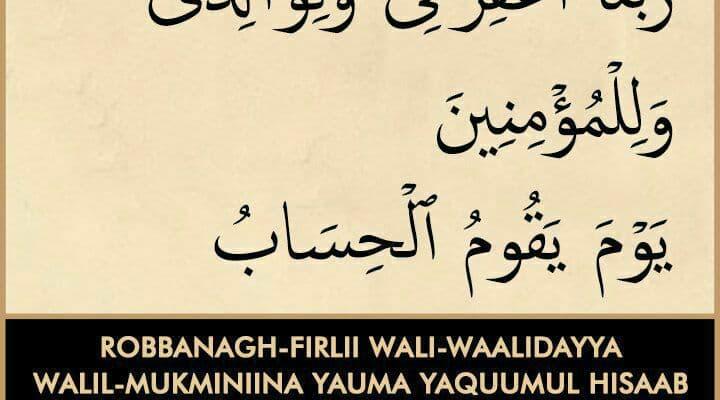 رَبَّنَا ٱغْفِرْ لِى وَلِوَٰلِدَىَّ
وَلِلْمُؤْمِنِينَ
يَوْمَ يَقُومُ ٱلْحِسَابُ
ROBBANAGH-FIRLII WALI-WAALIDAYYA
WALIL-MUKMINIINA YAUMA YAQUUMUL HISAAB